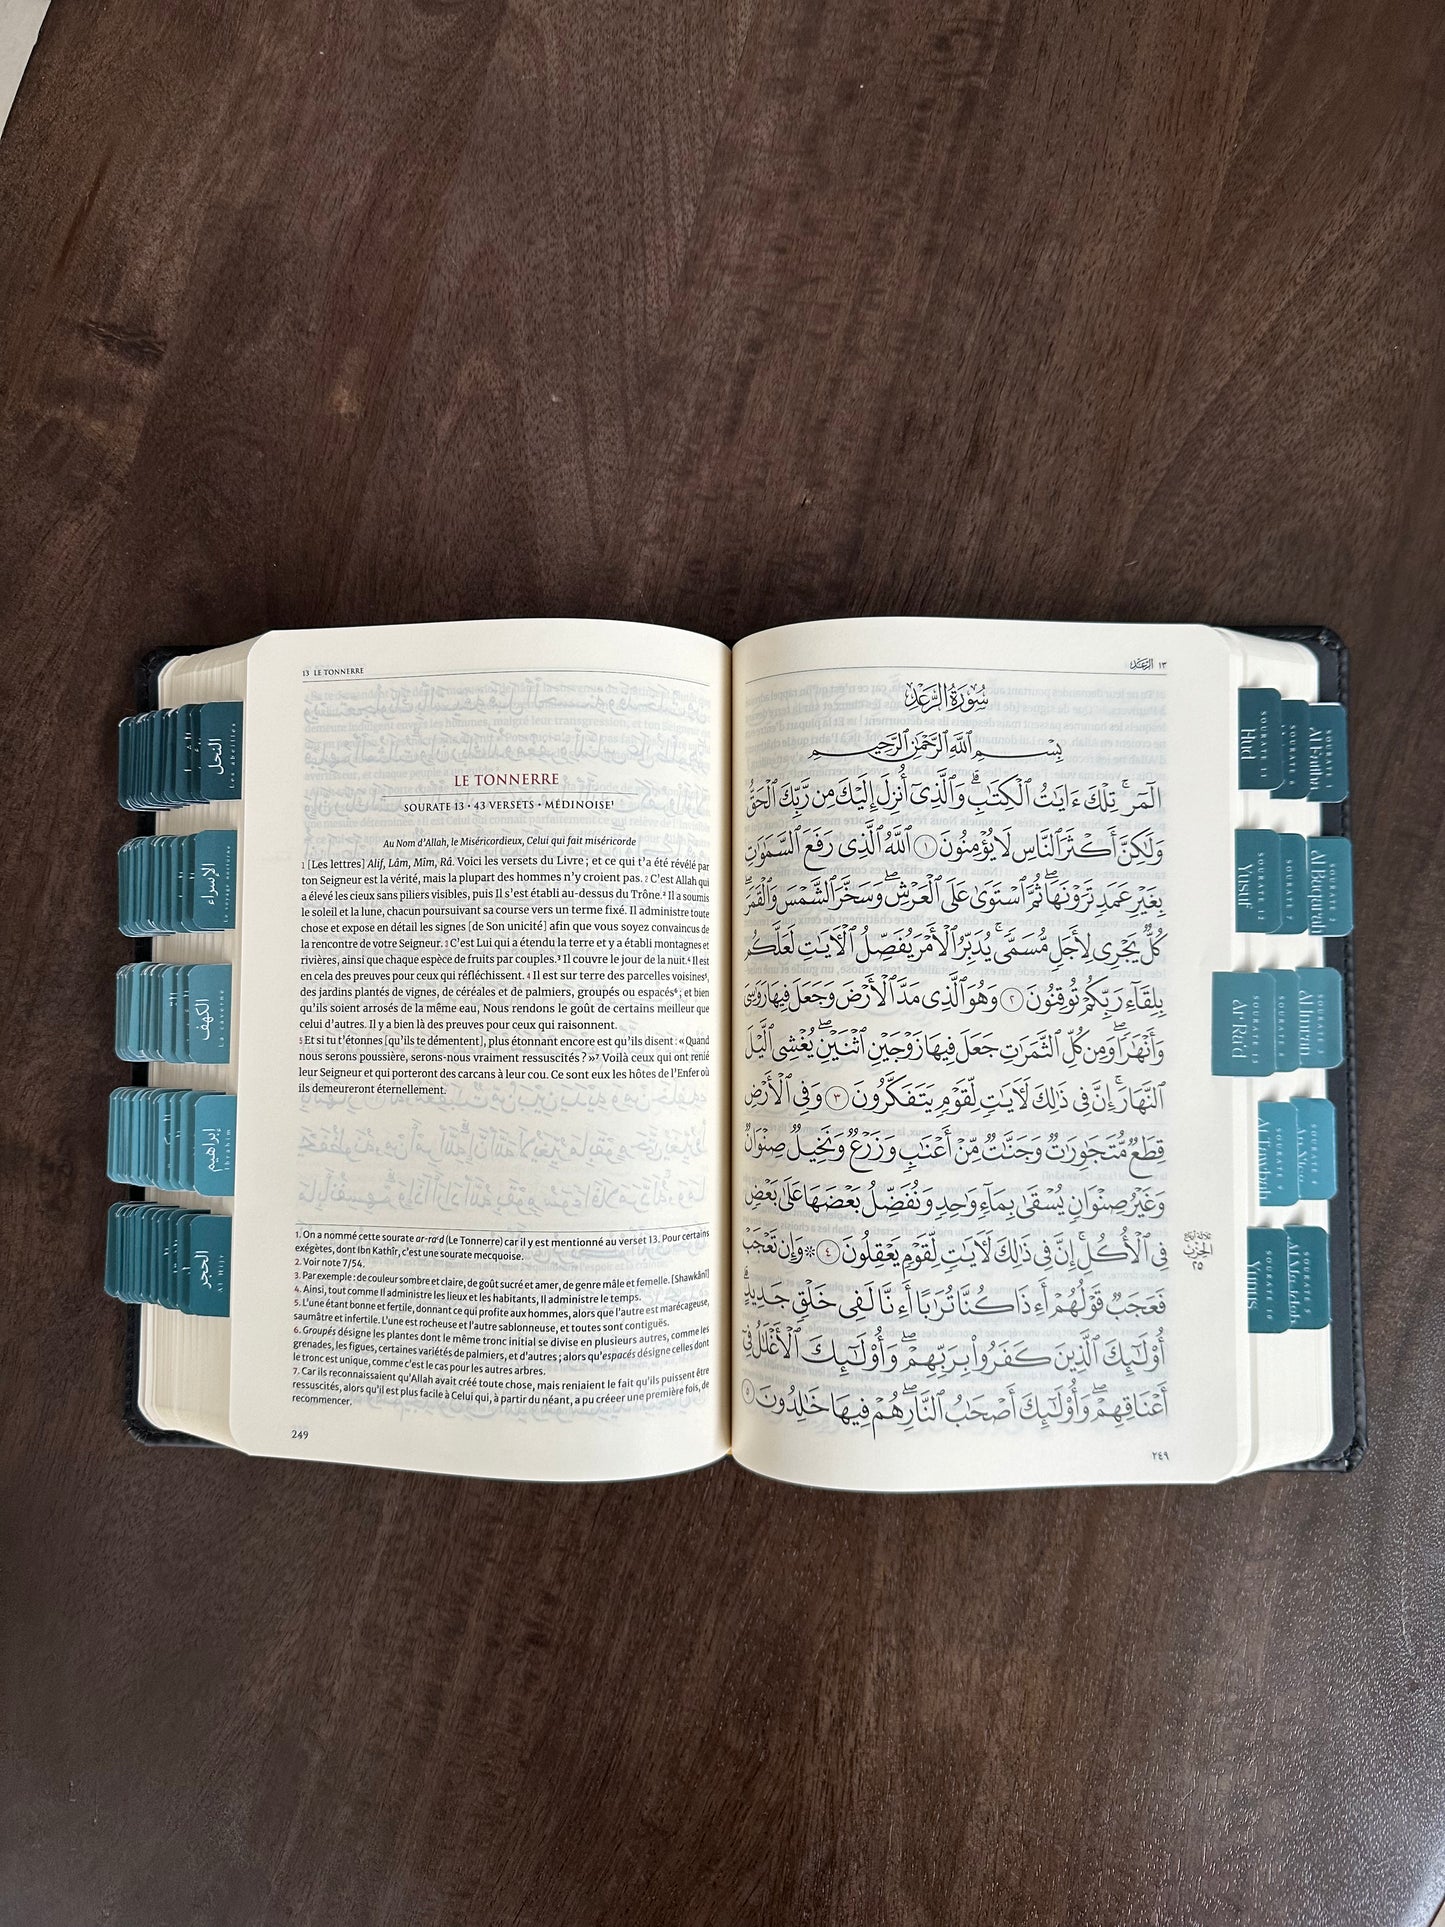 13 LE TONNERRE
LE TONNERRE
SOURATE 13 • 43 VERSETS • MÉDINOISE¹
Au Nom d’Allah, le Miséricordieux, Celui qui fait miséricorde
1 [Les lettres] Alif, Lâm, Mîm, Râ. Voici les versets du Livre ; et ce qui t’a été révélé par
ton Seigneur est la vérité, mais la plupart des hommes n’y croient pas. 2 C’est Allah qui
a élevé les cieux sans piliers visibles, puis Il s’est établi au-dessus du Trône.² Il a soumis
le soleil et la lune, chacun poursuivant sa course vers un terme fixé. Il administre toute
chose et expose en détail les signes [de Son unicité] afin que vous soyez convaincus de
la rencontre de votre Seigneur. 3 C’est Lui qui a étendu la terre et y a établi montagnes et
rivières, ainsi que chaque espèce de fruits par couples.³ Il couvre le jour de la nuit.⁴ Il est
en cela des preuves pour ceux qui réfléchissent. 4 Il est sur terre des parcelles voisines⁵,
des jardins plantés de vignes, de céréales et de palmiers, groupés ou espacés⁶ ; et bien
qu’ils soient arrosés de la même eau, Nous rendons le goût de certains meilleur que
celui d’autres. Il y a bien là des preuves pour ceux qui raisonnent.
5 Et si tu t’étonnes [qu’ils te démentent], plus étonnant encore est qu’ils disent : « Quand
nous serons poussière, serons-nous vraiment ressuscités ? »⁷ Voilà ceux qui ont renié
leur Seigneur et qui porteront des carcans à leur cou. Ce sont eux les hôtes de l’Enfer où
ils demeureront éternellement.
1. On a nommé cette sourate ar-ra‘d (Le Tonnerre) car il y est mentionné au verset 13. Pour certains
exégètes, dont Ibn Kathîr, c’est une sourate mecquoise.
2. Voir note 7/54.
3. Par exemple : de couleur sombre et claire, de goût sucré et amer, de genre mâle et femelle. [Shawkânî]
4. Ainsi, tout comme Il administre les lieux et les habitants, Il administre le temps.
5. L’une étant bonne et fertile, donnant ce qui profite aux hommes, alors que l’autre est marécageuse,
saumâtre et infertile. L’une est rocheuse et l’autre sablonneuse, et toutes sont contiguës.
6. Groupés désigne les plantes dont le même tronc initial se divise en plusieurs autres, comme les
grenades, les figues, certaines variétés de palmiers, et d’autres ; alors qu’espacés désigne celles dont
le tronc est unique, comme c’est le cas pour les autres arbres.
7. Car ils reconnaissaient qu’Allah avait créé toute chose, mais reniaient le fait qu’ils puissent être
ressuscités, alors qu’il est plus facile à Celui qui, à partir du néant, a pu créer une première fois, de
recommencer.
249
النحل
Les abeilles
الإسراء
Le voyage nocturne
الكهف
La caverne
إبراهيم
Ibrahim
الحجر
Al Hijr
١٣ الرَّعْد
سُورَةُ الرَّعْدِ
بِسْمِ ٱللَّهِ ٱلرَّحْمَٰنِ ٱلرَّحِيمِ
الٓمٓر ۚ تِلْكَ ءَايَٰتُ ٱلْكِتَٰبِ ۗ وَٱلَّذِىٓ أُنزِلَ إِلَيْكَ مِن رَّبِّكَ ٱلْحَقُّ
وَلَٰكِنَّ أَكْثَرَ ٱلنَّاسِ لَا يُؤْمِنُونَ ١ ٱللَّهُ ٱلَّذِى رَفَعَ ٱلسَّمَٰوَٰتِ
بِغَيْرِ عَمَدٍ تَرَوْنَهَا ۖ ثُمَّ ٱسْتَوَىٰ عَلَى ٱلْعَرْشِ ۖ وَسَخَّرَ ٱلشَّمْسَ وَٱلْقَمَرَ ۖ
كُلٌّ يَجْرِى لِأَجَلٍ مُّسَمًّى ۚ يُدَبِّرُ ٱلْأَمْرَ يُفَصِّلُ ٱلْءَايَٰتِ لَعَلَّكُم
بِلِقَآءِ رَبِّكُمْ تُوقِنُونَ ٢ وَهُوَ ٱلَّذِى مَدَّ ٱلْأَرْضَ وَجَعَلَ فِيهَا رَوَٰسِىَ
وَأَنْهَٰرًا ۖ وَمِن كُلِّ ٱلثَّمَرَٰتِ جَعَلَ فِيهَا زَوْجَيْنِ ٱثْنَيْنِ ۖ يُغْشِى ٱلَّيْلَ
ٱلنَّهَارَ ۚ إِنَّ فِى ذَٰلِكَ لَءَايَٰتٍ لِّقَوْمٍ يَتَفَكَّرُونَ ٣ وَفِى ٱلْأَرْضِ
قِطَعٌ مُّتَجَٰوِرَٰتٌ وَجَنَّٰتٌ مِّنْ أَعْنَٰبٍ وَزَرْعٌ وَنَخِيلٌ صِنْوَانٌ
وَغَيْرُ صِنْوَانٍ يُسْقَىٰ بِمَآءٍ وَٰحِدٍ وَنُفَضِّلُ بَعْضَهَا عَلَىٰ بَعْضٍ
فِى ٱلْأُكُلِ ۚ إِنَّ فِى ذَٰلِكَ لَءَايَٰتٍ لِّقَوْمٍ يَعْقِلُونَ ٤ ۞ وَإِن تَعْجَبْ
فَعَجَبٌ قَوْلُهُمْ أَءِذَا كُنَّا تُرَٰبًا أَءِنَّا لَفِى خَلْقٍ جَدِيدٍ ۗ
أُو۟لَٰٓئِكَ ٱلَّذِينَ كَفَرُوا۟ بِرَبِّهِمْ ۖ وَأُو۟لَٰٓئِكَ ٱلْأَغْلَٰلُ فِىٓ
أَعْنَاقِهِمْ ۖ وَأُو۟لَٰٓئِكَ أَصْحَٰبُ ٱلنَّارِ ۖ هُمْ فِيهَا خَٰلِدُونَ ٥
٢٤٩
الحزب
٢٥
SOURATE 11
Hud
SOURATE 1
Al Fatiha
SOURATE 12
Yusuf
SOURATE 7
SOURATE 2
Al Baqarah
Ar Ra'd
SOURATE 8
SOURATE 3
Al Imran
SOURATE 9
At Tawbah
SOURATE 4
An Nisa
SOURATE 10
Yunus
SOURATE 5
Al Ma'idah